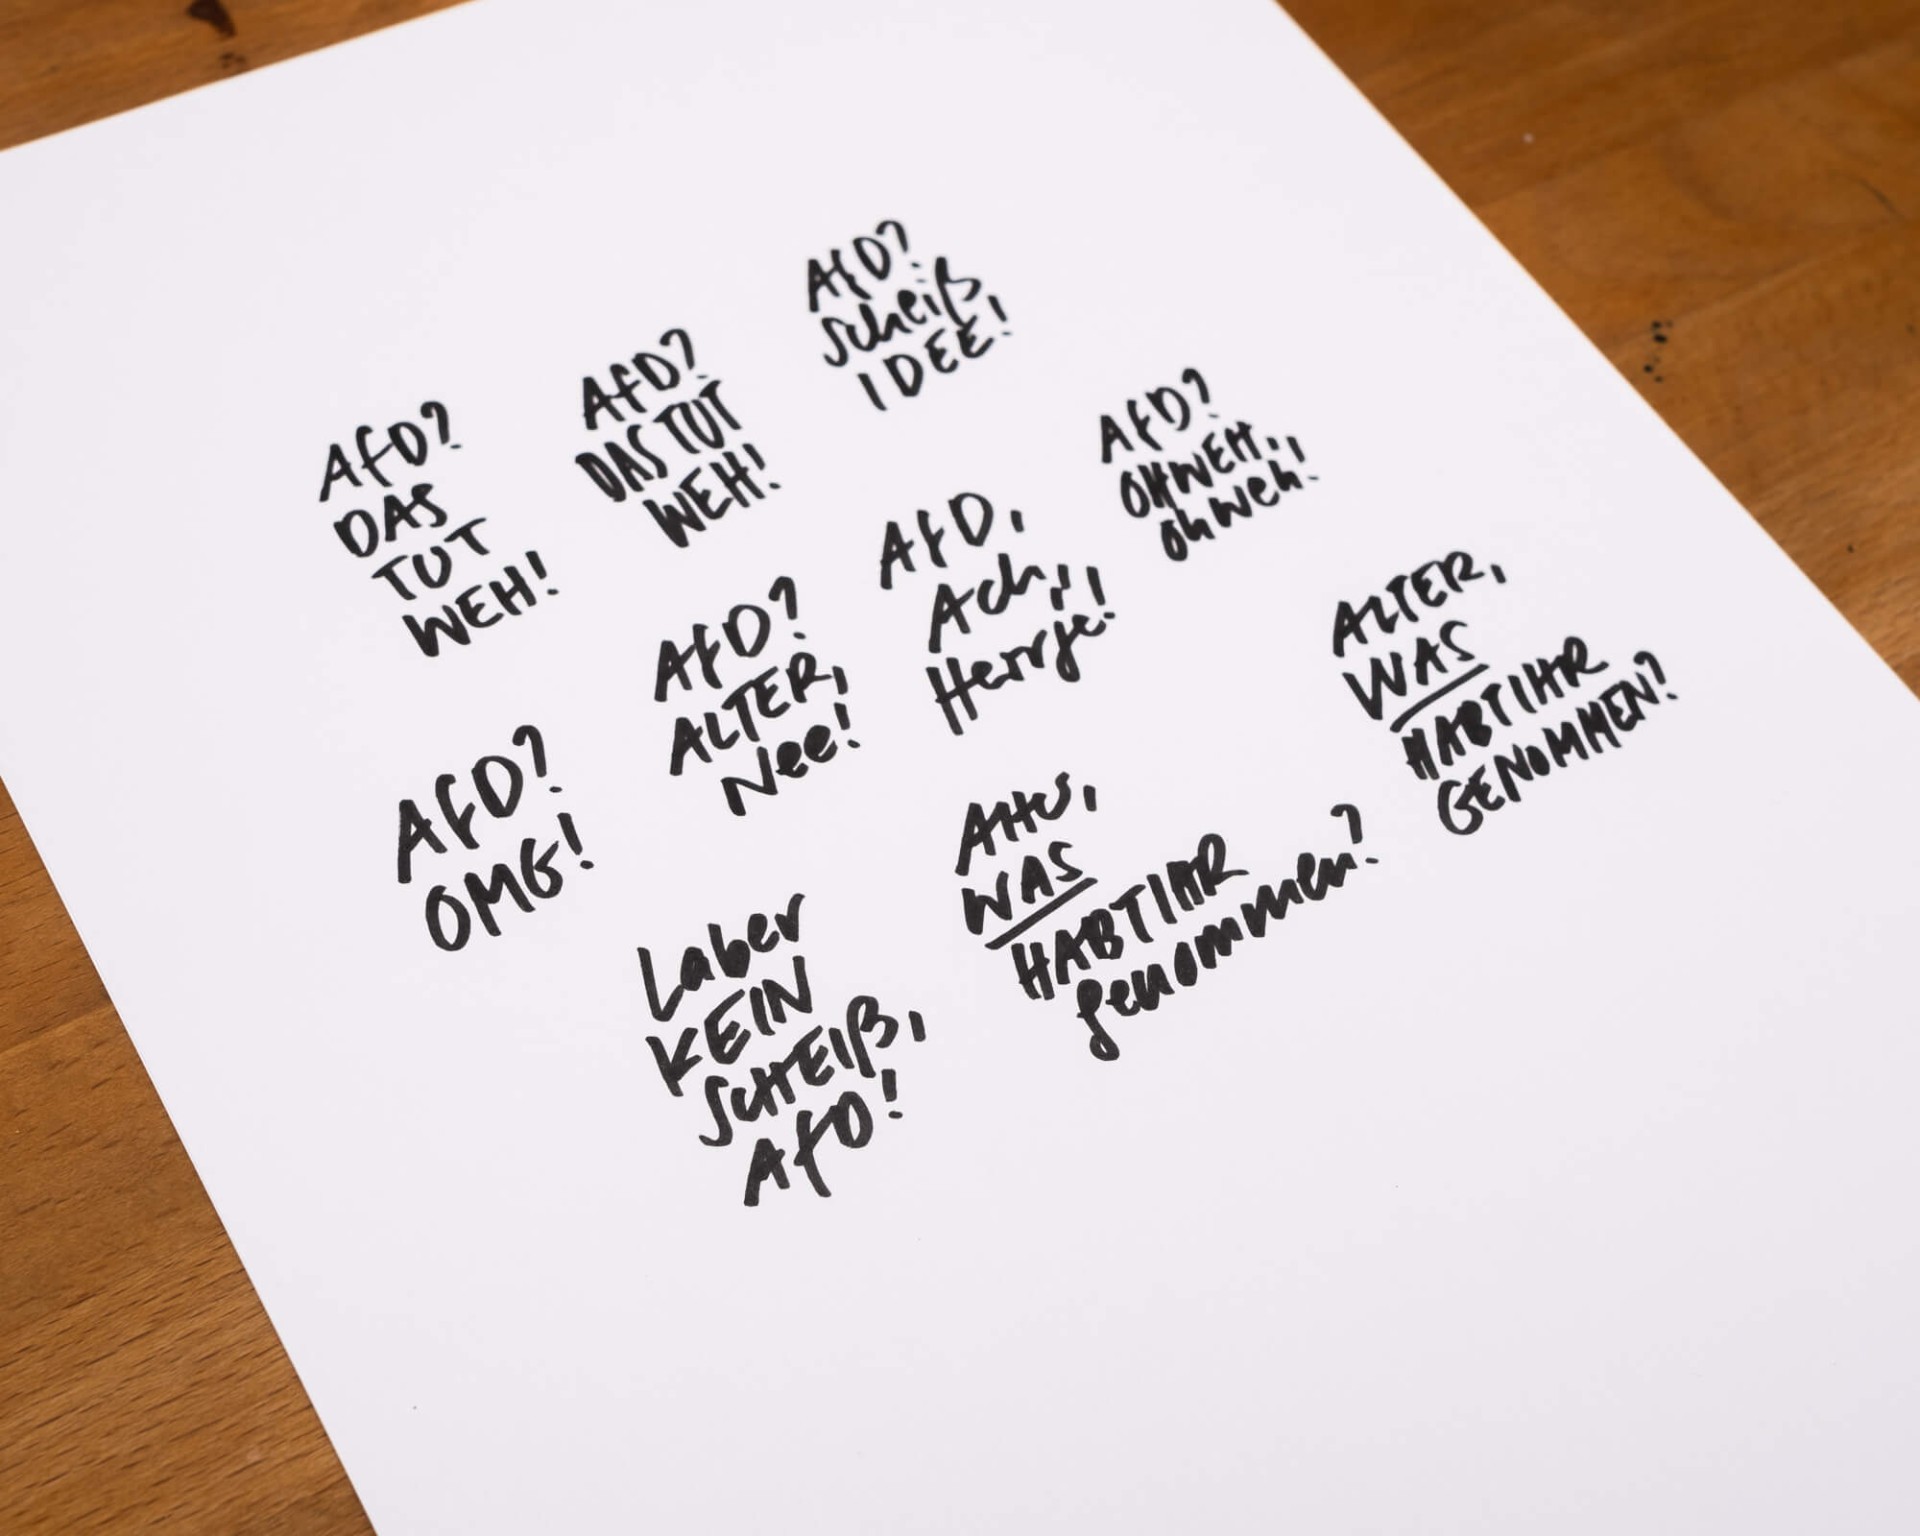 AfD?
scheiß
IDEE!
AfD?
DAS TUT
WEH!
AfD?
DAS
TUT
WEH!
AfD?
OHWEH,
ohweh!
AfD,
Ach,
Herrje!
AfD?
ALTER,
Nee!
ALTER,
WAS
HABT IHR
GENOMMEN?
AfD?
OMG!
WAS
HABT IHR
genommen?
Laber
KEIN
SCHEIß,
AfD!